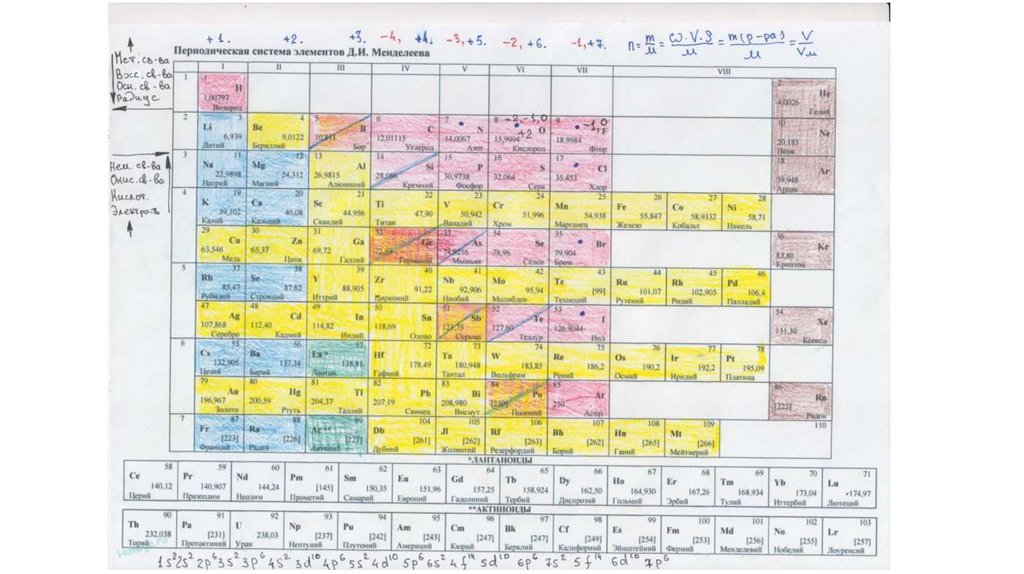 +1. +2. +3. -4, +4. -3,+5. -2, +6. -1,+7. n=m/M=ω.V.ρ/M=m(р-ра)/M=V/Vм
Периодическая система элементов Д.И. Менделеева
Мет. св-ва
Восс. св-ва
Осн. св-ва
Радиус
Нем. св-ва
Окис. св-ва
Кислот.
Электр-ть
I II III IV V VI VII VIII
1 1 H 1,00797 Водород 2 He 4,0026 Гелий
2 Li 3 6,939 Литий Be 4 9,0122 Бериллий 5 B 10,811 Бор 6 C 12,01115 Углерод 7 N 14,0067 Азот 8 -2,-1,0 +2 O 15,9994 Кислород 9 -1,0 F 18,9984 Фтор 10 Ne 20,183 Неон
3 Na 11 22,9898 Натрий Mg 12 24,312 Магний 13 Al 26,9815 Алюминий 14 Si 28,086 Кремний 15 P 30,9738 Фосфор 16 S 32,064 Сера 17 Cl 35,453 Хлор 18 Ar 39,948 Аргон
4 K 19 39,102 Калий Ca 20 40,08 Кальций Sc 21 44,956 Скандий Ti 22 47,90 Титан V 23 50,942 Ванадий Cr 24 51,996 Хром Mn 25 54,938 Марганец Fe 26 55,847 Железо Co 27 58,9332 Кобальт Ni 28 58,71 Никель
29 Cu 63,546 Медь 30 Zn 65,37 Цинк 31 Ga 69,72 Галлий 32 Ge 72,59 Германий 33 As 74,9216 Мышьяк 34 Se 78,96 Селен 35 Br 79,904 Бром 36 Kr 83,80 Криптон
5 Rb 37 85,47 Рубидий Sr 38 87,62 Стронций Y 39 88,905 Иттрий Zr 40 91,22 Цирконий Nb 41 92,906 Ниобий Mo 42 95,94 Молибден Tc 43 [99] Технеций Ru 44 101,07 Рутений Rh 45 102,905 Родий Pd 46 106,4 Палладий
47 Ag 107,868 Серебро 48 Cd 112,40 Кадмий 49 In 114,82 Индий 50 Sn 118,69 Олово 51 Sb 121,75 Сурьма 52 Te 127,60 Теллур 53 I 126,9044 Иод 54 Xe 131,30 Ксенон
6 Cs 55 132,905 Цезий Ba 56 137,34 Барий La * 57 138,81 Лантан Hf 72 178,49 Гафний Ta 73 180,948 Тантал W 74 183,85 Вольфрам Re 75 186,2 Рений Os 76 190,2 Осмий Ir 77 192,2 Иридий Pt 78 195,09 Платина
79 Au 196,967 Золото 80 Hg 200,59 Ртуть 81 Tl 204,37 Таллий 82 Pb 207,19 Свинец 83 Bi 208,980 Висмут 84 Po [210] Полоний 85 At 210 Астат 86 Rn [222] Радон
7 Fr 87 [223] Франций Ra 88 [226] Радий Ac ** 89 [227] Актиний Db 104 [261] Дубний Jl 105 [262] Жолиотий Rf 106 [263] Резерфордий Bh 107 [262] Борий Hn 108 [265] Ганий Mt 109 [266] Мейтнерий 110
*ЛАНТАНОИДЫ
Ce 58 140,12 Церий Pr 59 140,907 Празеодим Nd 60 144,24 Неодим Pm 61 [145] Прометий Sm 62 150,35 Самарий Eu 63 151,96 Европий Gd 64 157,25 Гадолиний Tb 65 158,924 Тербий Dy 66 162,50 Диспрозий Ho 67 164,930 Гольмий Er 68 167,26 Эрбий Tm 69 168,934 Тулий Yb 70 173,04 Иттербий Lu 71 174,97 Лютеций
**АКТИНОИДЫ
Th 90 232,038 Торий Pa 91 [231] Протактиний U 92 238,03 Уран Np 93 [237] Нептуний Pu 94 [242] Плутоний Am 95 [243] Америций Cm 96 [247] Кюрий Bk 97 [247] Берклий Cf 98 [249] Калифорний Es 99 [254] Эйнштейний Fm 100 [253] Фермий Md 101 [256] Менделевий No 102 [255] Нобелий Lr 103 [257] Лоуренсий
1s²2s²2p⁶3s²3p⁶4s²3d¹⁰4p⁶5s²4d¹⁰5p⁶6s²4f¹⁴5d¹⁰6p⁶7s²5f¹⁴6d¹⁰7p⁶